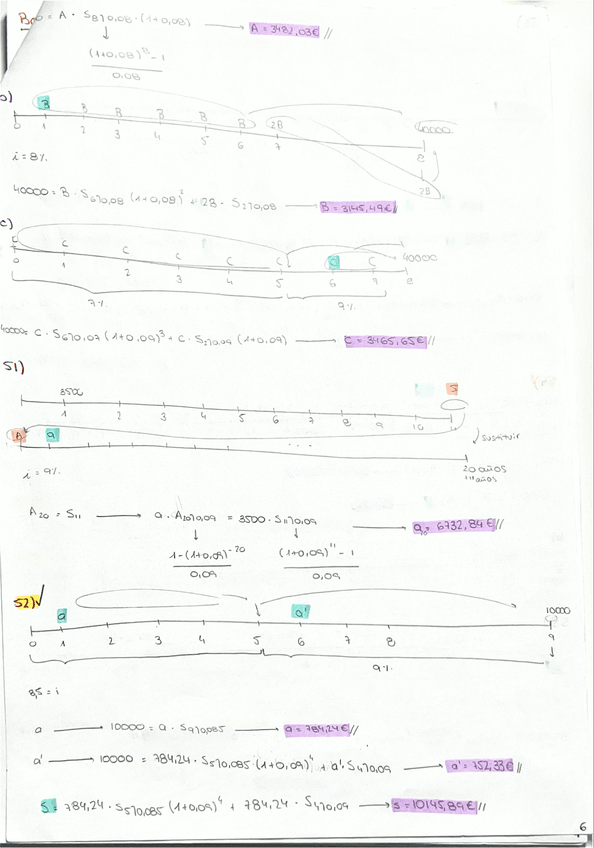 = A · S8⌉0,08 · (1+0,08) → A = 3482,03€ //
(1+0,08)^8 - 1
0,08
b)
B B B B B B 2B 40000
0 1 2 3 4 5 6 7 8
i = 8%
2B
40000 = B · S6⌉0,08 (1+0,08)² + 2B · S2⌉0,08 → B = 3145,49€ //
c)
C C C C C C C C 40000
0 1 2 3 4 5 6 9 8
7% 9%
40000 = C · S6⌉0,07 (1+0,09)³ + C · S2⌉0,09 (1+0,09) → C = 3465,65€ //
51)
3500 S
1 2 3 4 5 6 7 8 9 10 11
A a ... sustituir
i = 9% 20 años
A20 = S11 → a · A20⌉0,09 = 3500 · S11⌉0,09 → a = 6732,84€ //
1-(1+0,09)^-20 (1+0,09)^11 - 1
0,09 0,09
52) ✓
a a' 10000
0 1 2 3 4 5 6 7 8 9
9%
8,5 = i
a → 10000 = a · S9⌉0,085 → a = 784,24€ //
a' → 10000 = 784,24 · S5⌉0,085 · (1+0,09)^4 + a' · S4⌉0,09 → a' = 752,33€ //
S = 784,24 · S5⌉0,085 (1+0,09)^4 + 784,24 · S4⌉0,09 → S = 10145,89€ //
6